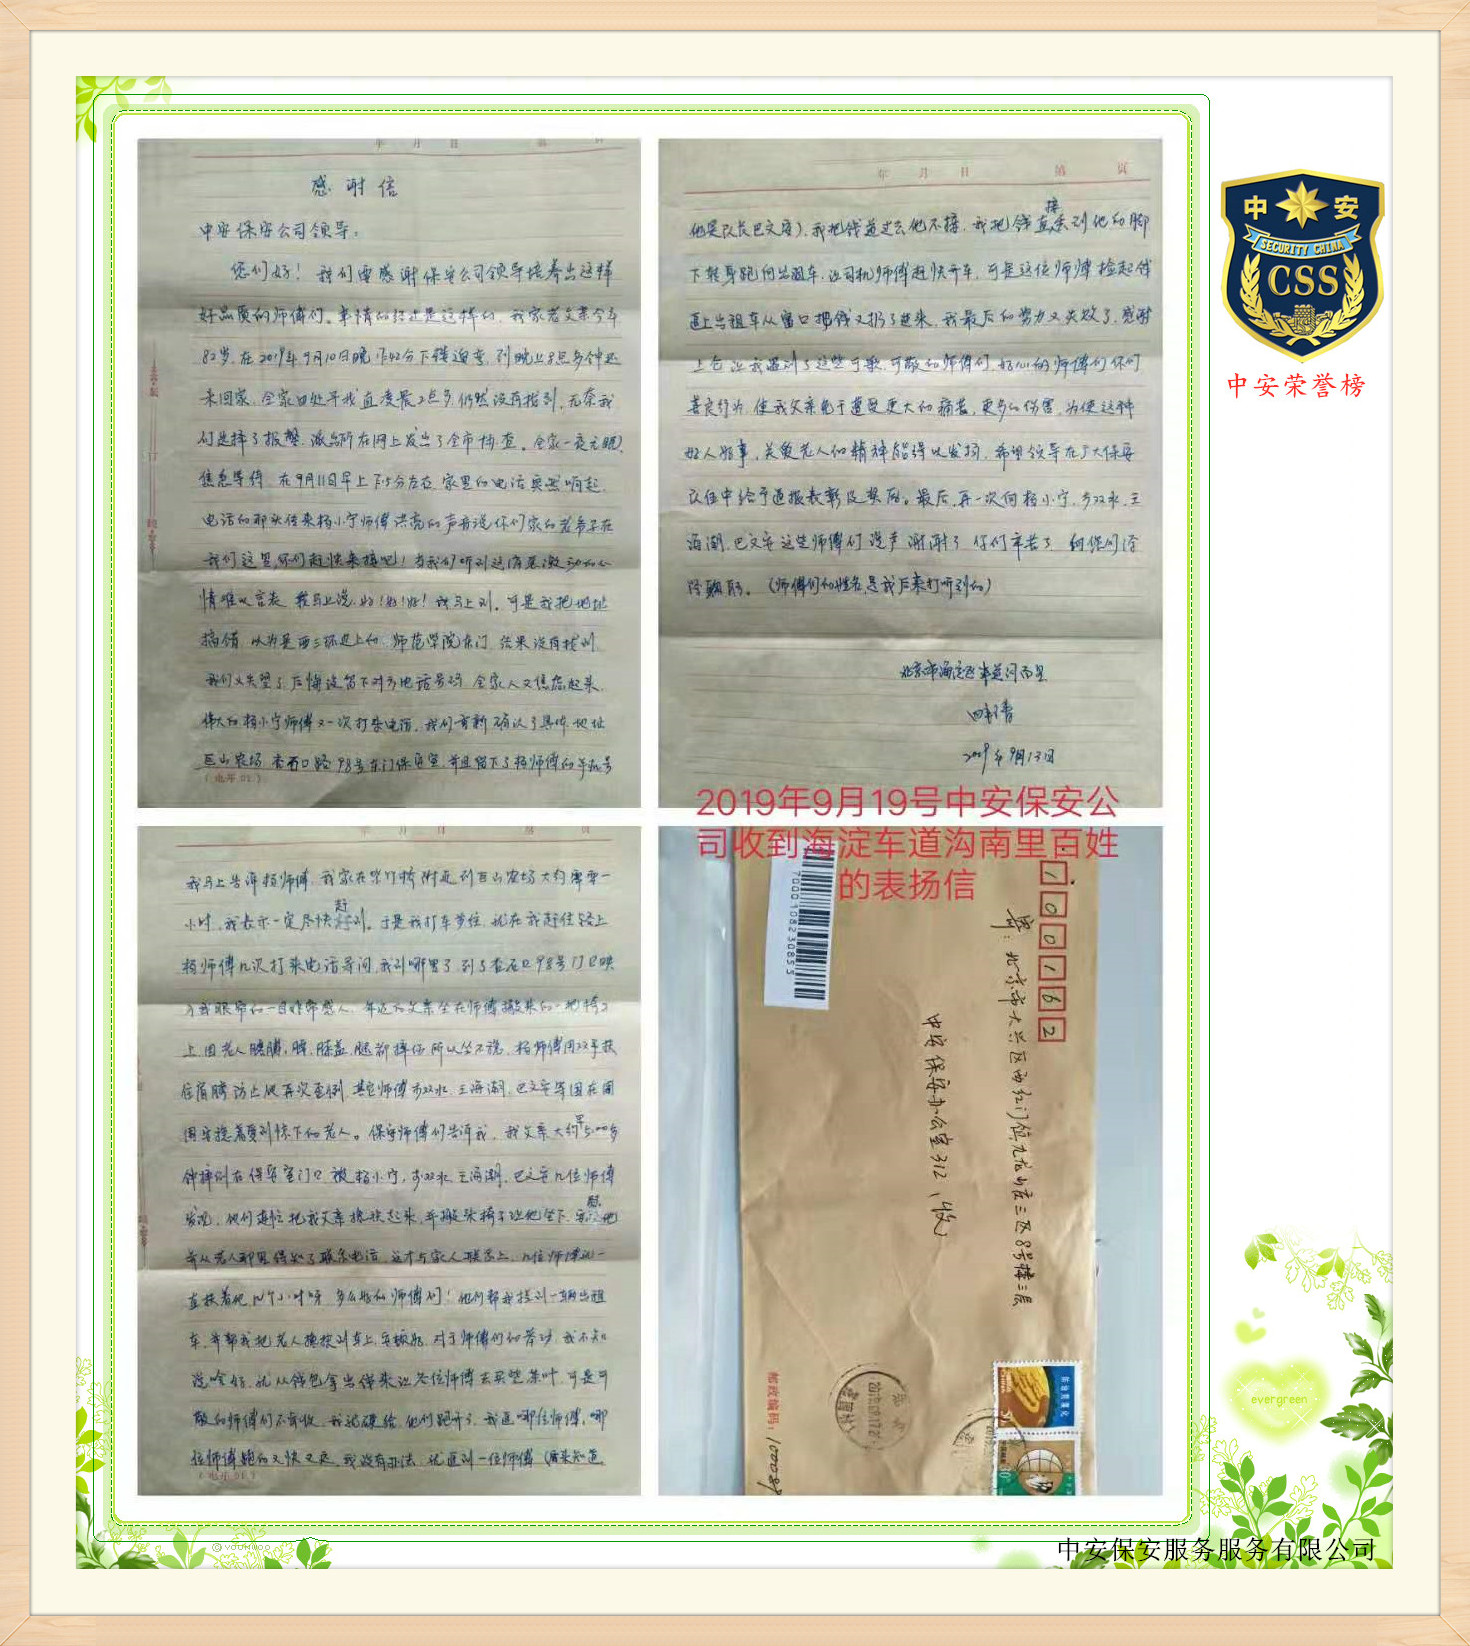 年 月 日 第 页
感谢信
中安保安公司领导:
您们好!我们要感谢保安公司领导培养出这样
好品质的师傅们。事情的经过是这样的,我家老父亲今年
82岁,在2019年9月10日晚
到晚上8点多钟还
未回家,全家四处寻找直凌晨2点多,仍然没有找到,无奈我
们选择了报警,派出所在网上发出了全市协查。全家一夜无眠,
焦急等待,在9月11日早上7:5分左右,家里的电话突然响起,
电话的那头传来杨小宁师傅洪亮的声音说你们家的老爷子在
我们这里,你们赶快来接吧!当我们听到这消息激动的心
情难以言表,我马上说,好!好!好!我马上到。可是我把地址
搞错,以为是西三环边上的,师范学院东门,结果没有找到,
我们又失望了,后悔没留下对方电话号码,全家人又焦虑起来,
伟大的杨小宁师傅又一次打来电话,我们重新确认了具体地址
巨山农场 杏石口路98号东门保安室,并且留下了杨师傅的手机号
我马上告诉杨师傅,我家在紫竹桥附近到巨山农场大约需要一
小时,我表示一定尽快赶到。于是我打车前往,就在我赶往路上
杨师傅几次打来电话寻问,我到哪里了,到了杏石口98号门口映
入我眼帘的一目非常感人,年迈的父亲坐在师傅搬来的一把椅子
上,因老人胳膊,脾,膝盖,腿都摔伤所以坐不稳,杨师傅用双手扶
住肩膀防止他再次歪倒,其它师傅方双水,王海潮,巴文安等围在周
围安抚着受到惊下的老人。保安师傅们告诉我,我父亲大约早5:00多
钟摔倒在保安室门口被杨小宁,方双水,王海潮,巴文安几位师傅
发现,他们连忙把我父亲搀扶起来,并搬来椅子让他坐下,安慰他
并从老人那里得知了联系电话,这才与家人联系上,几位师傅就一
直扶着他几个小时呀,多么好的师傅们!他们帮我找到一辆出租
车,并帮我把老人搀扶到车上,安顿好,对于师傅们的帮助,我不知
说啥好,就从钱包拿出钱来让各位师傅去买些茶叶,可是可
敬的师傅们不肯收,我说硬给,他们跑开了,我追哪位师傅,哪
位师傅跑的又快又远,我没有办法,就追到一位师傅(后来知道
年 月 日 第 页
他是队长巴文安),我把钱递过去他不接,我把钱直接丢到他的脚
下转身跑向出租车,让司机师傅赶快开车,可是这位师傅捡起钱
追上出租车从窗口把钱又扔了进来,我最后的努力又失败了,感谢
上仓让我遇到了这些可歌,可敬的师傅们,好心的师傅们你们
善良行为,使我父亲免于遭受更大的痛苦,更多的伤害,为使这种
好人好事,关爱老人的精神能得以发扬,希望领导在广大保安
队伍中给予通报表彰及奖励。最后,再一次向杨小宁,方双水,王
海潮,巴文安这些师傅们说声谢谢了,你们辛苦了,向您们
(师傅们的姓名是我后来打听到的)
北京市海淀区车道沟南里
2019年9月13日
2019年9月19号中安保安公
司收到海淀车道沟南里百姓
的表扬信
100162
寄:北京市大兴区西红门镇九龙山庄三区8号楼三层
中安保安办公室312,收
邮政编码:100089
中安
SECURITY CHINA
CSS
中安荣誉榜
evergreen
YOUNWOO
中安保安服务服务有限公司